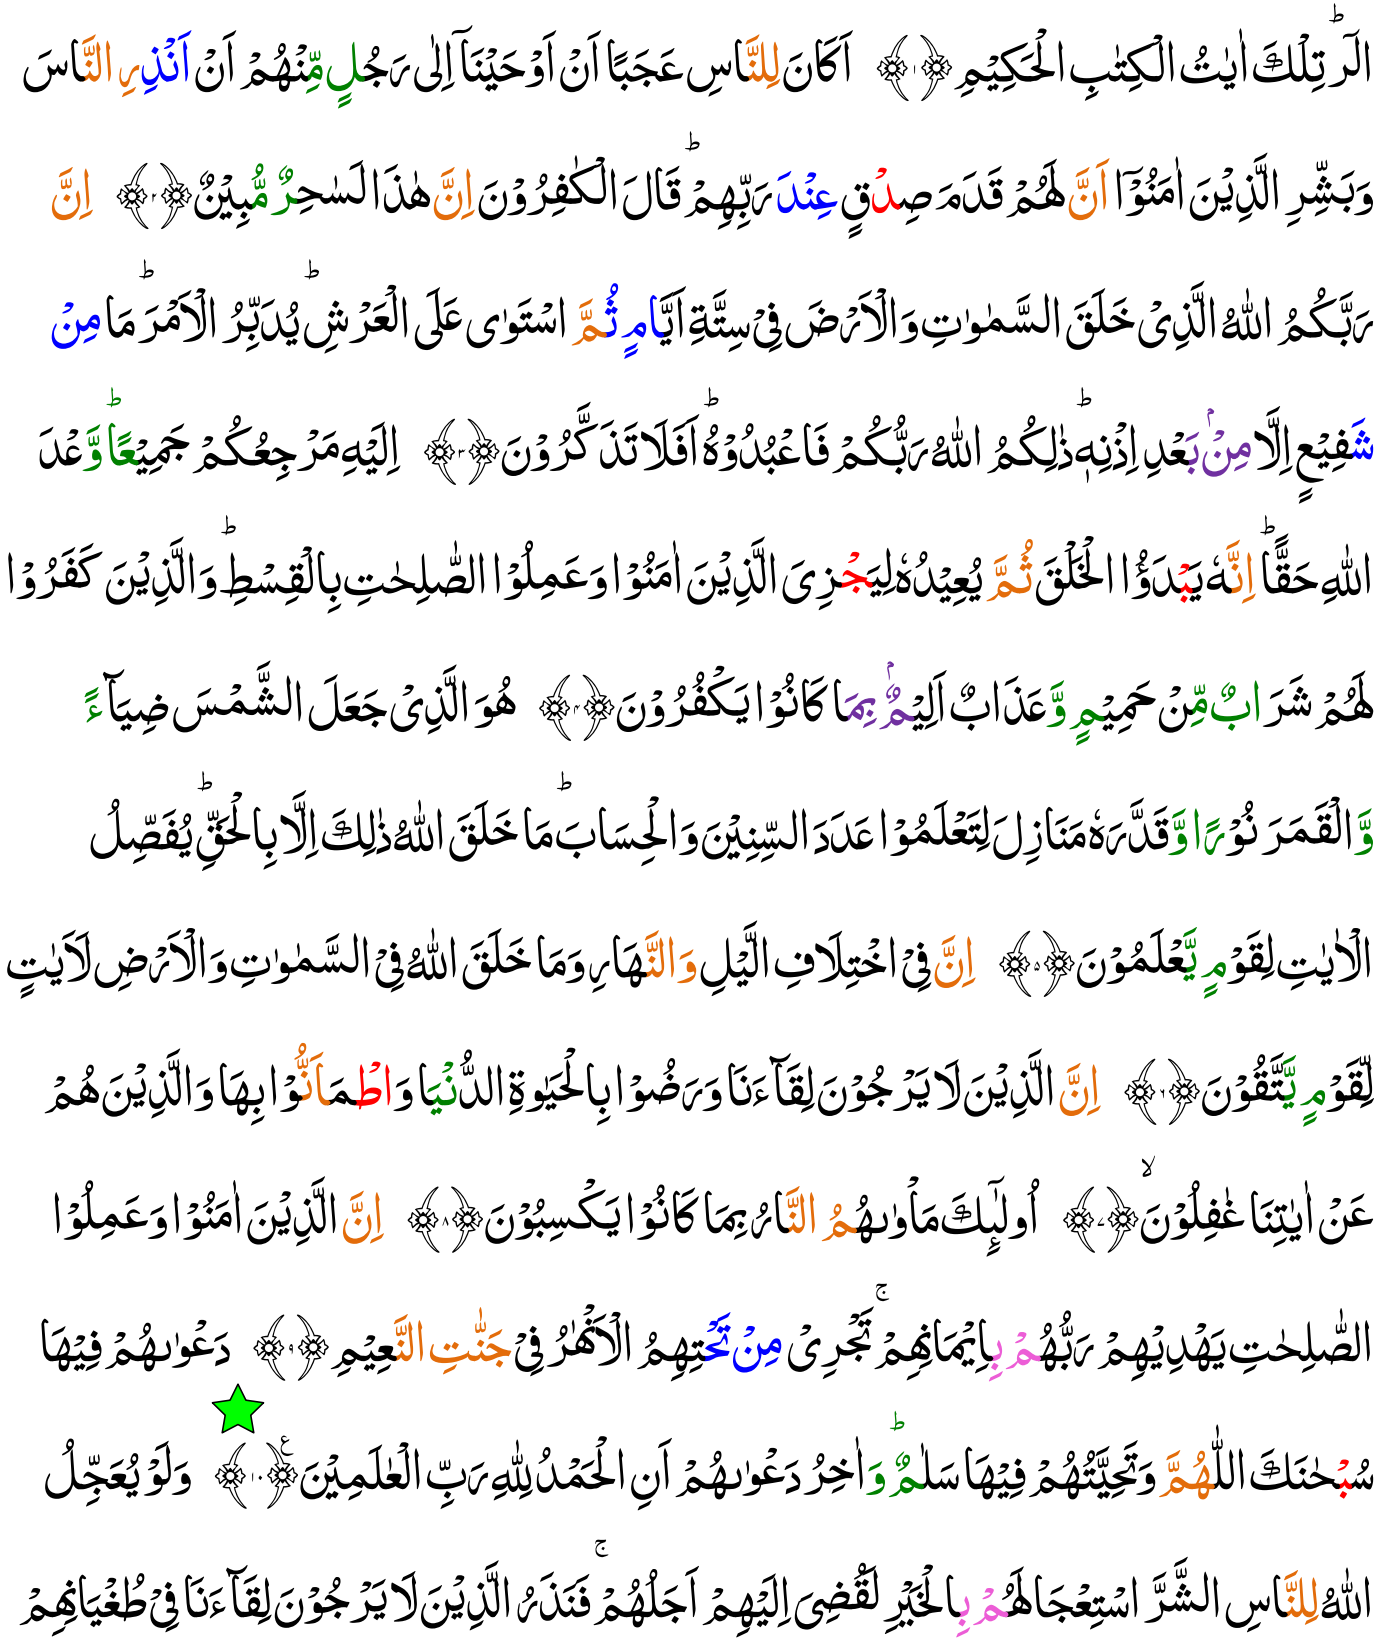 الٓرٰ ؕ تِلْكَ اٰیٰتُ الْكِتٰبِ الْحَكِیْمِ ﴿۱﴾ اَكَانَ لِلنَّاسِ عَجَبًا اَنْ اَوْحَیْنَاۤ اِلٰی رَجُلٍ مِّنْهُمْ اَنْ اَنْذِرِ النَّاسَ
وَبَشِّرِ الَّذِیْنَ اٰمَنُوْۤا اَنَّ لَهُمْ قَدَمَ صِدْقٍ عِنْدَ رَبِّهِمْ ؕ قَالَ الْكٰفِرُوْنَ اِنَّ هٰذَا لَسٰحِرٌ مُّبِیْنٌ ﴿۲﴾ اِنَّ
رَبَّكُمُ اللّٰهُ الَّذِیْ خَلَقَ السَّمٰوٰتِ وَالْاَرْضَ فِیْ سِتَّةِ اَیَّامٍ ثُمَّ اسْتَوٰی عَلَی الْعَرْشِ ؕ یُدَبِّرُ الْاَمْرَ ؕ مَا مِنْ
شَفِیْعٍ اِلَّا مِنْۢ بَعْدِ اِذْنِهٖ ؕ ذٰلِكُمُ اللّٰهُ رَبُّكُمْ فَاعْبُدُوْهُ ؕ اَفَلَا تَذَكَّرُوْنَ ﴿۳﴾ اِلَیْهِ مَرْجِعُكُمْ جَمِیْعًا ؕ وَّعْدَ
اللّٰهِ حَقًّا ؕ اِنَّهٗ یَبْدَؤُا الْخَلْقَ ثُمَّ یُعِیْدُهٗ لِیَجْزِیَ الَّذِیْنَ اٰمَنُوْا وَعَمِلُوْا الصّٰلِحٰتِ بِالْقِسْطِ ؕ وَالَّذِیْنَ كَفَرُوْا
لَهُمْ شَرَابٌ مِّنْ حَمِیْمٍ وَّعَذَابٌ اَلِیْمٌۢ بِمَا كَانُوْا یَكْفُرُوْنَ ﴿۴﴾ هُوَ الَّذِیْ جَعَلَ الشَّمْسَ ضِیَآءً
وَّالْقَمَرَ نُوْرًا وَّقَدَّرَهٗ مَنَازِلَ لِتَعْلَمُوْا عَدَدَ السِّنِیْنَ وَالْحِسَابَ ؕ مَا خَلَقَ اللّٰهُ ذٰلِكَ اِلَّا بِالْحَقِّ ؕ یُفَصِّلُ
الْاٰیٰتِ لِقَوْمٍ یَّعْلَمُوْنَ ﴿۵﴾ اِنَّ فِیْ اخْتِلَافِ الَّیْلِ وَالنَّهَارِ وَمَا خَلَقَ اللّٰهُ فِیْ السَّمٰوٰتِ وَالْاَرْضِ لَاٰیٰتٍ
لِّقَوْمٍ یَّتَّقُوْنَ ﴿۶﴾ اِنَّ الَّذِیْنَ لَا یَرْجُوْنَ لِقَآءَنَا وَرَضُوْا بِالْحَیٰوةِ الدُّنْیَا وَاطْمَاَنُّوْا بِهَا وَالَّذِیْنَ هُمْ
عَنْ اٰیٰتِنَا غٰفِلُوْنَ ۙ﴿۷﴾ اُولٰٓئِكَ مَاْوٰىهُمُ النَّارُ بِمَا كَانُوْا یَكْسِبُوْنَ ﴿۸﴾ اِنَّ الَّذِیْنَ اٰمَنُوْا وَعَمِلُوْا
الصّٰلِحٰتِ یَهْدِیْهِمْ رَبُّهُمْ بِاِیْمَانِهِمْ ۚ تَجْرِیْ مِنْ تَحْتِهِمُ الْاَنْهٰرُ فِیْ جَنّٰتِ النَّعِیْمِ ﴿۹﴾ دَعْوٰىهُمْ فِیْهَا
سُبْحٰنَكَ اللّٰهُمَّ وَتَحِیَّتُهُمْ فِیْهَا سَلٰمٌ ؕ وَاٰخِرُ دَعْوٰىهُمْ اَنِ الْحَمْدُ لِلّٰهِ رَبِّ الْعٰلَمِیْنَ ﴿۱۰﴾ ع وَلَوْ یُعَجِّلُ
اللّٰهُ لِلنَّاسِ الشَّرَّ اسْتِعْجَالَهُمْ بِالْخَیْرِ لَقُضِیَ اِلَیْهِمْ اَجَلُهُمْ ۚ فَنَذَرُ الَّذِیْنَ لَا یَرْجُوْنَ لِقَآءَنَا فِیْ طُغْیَانِهِمْ